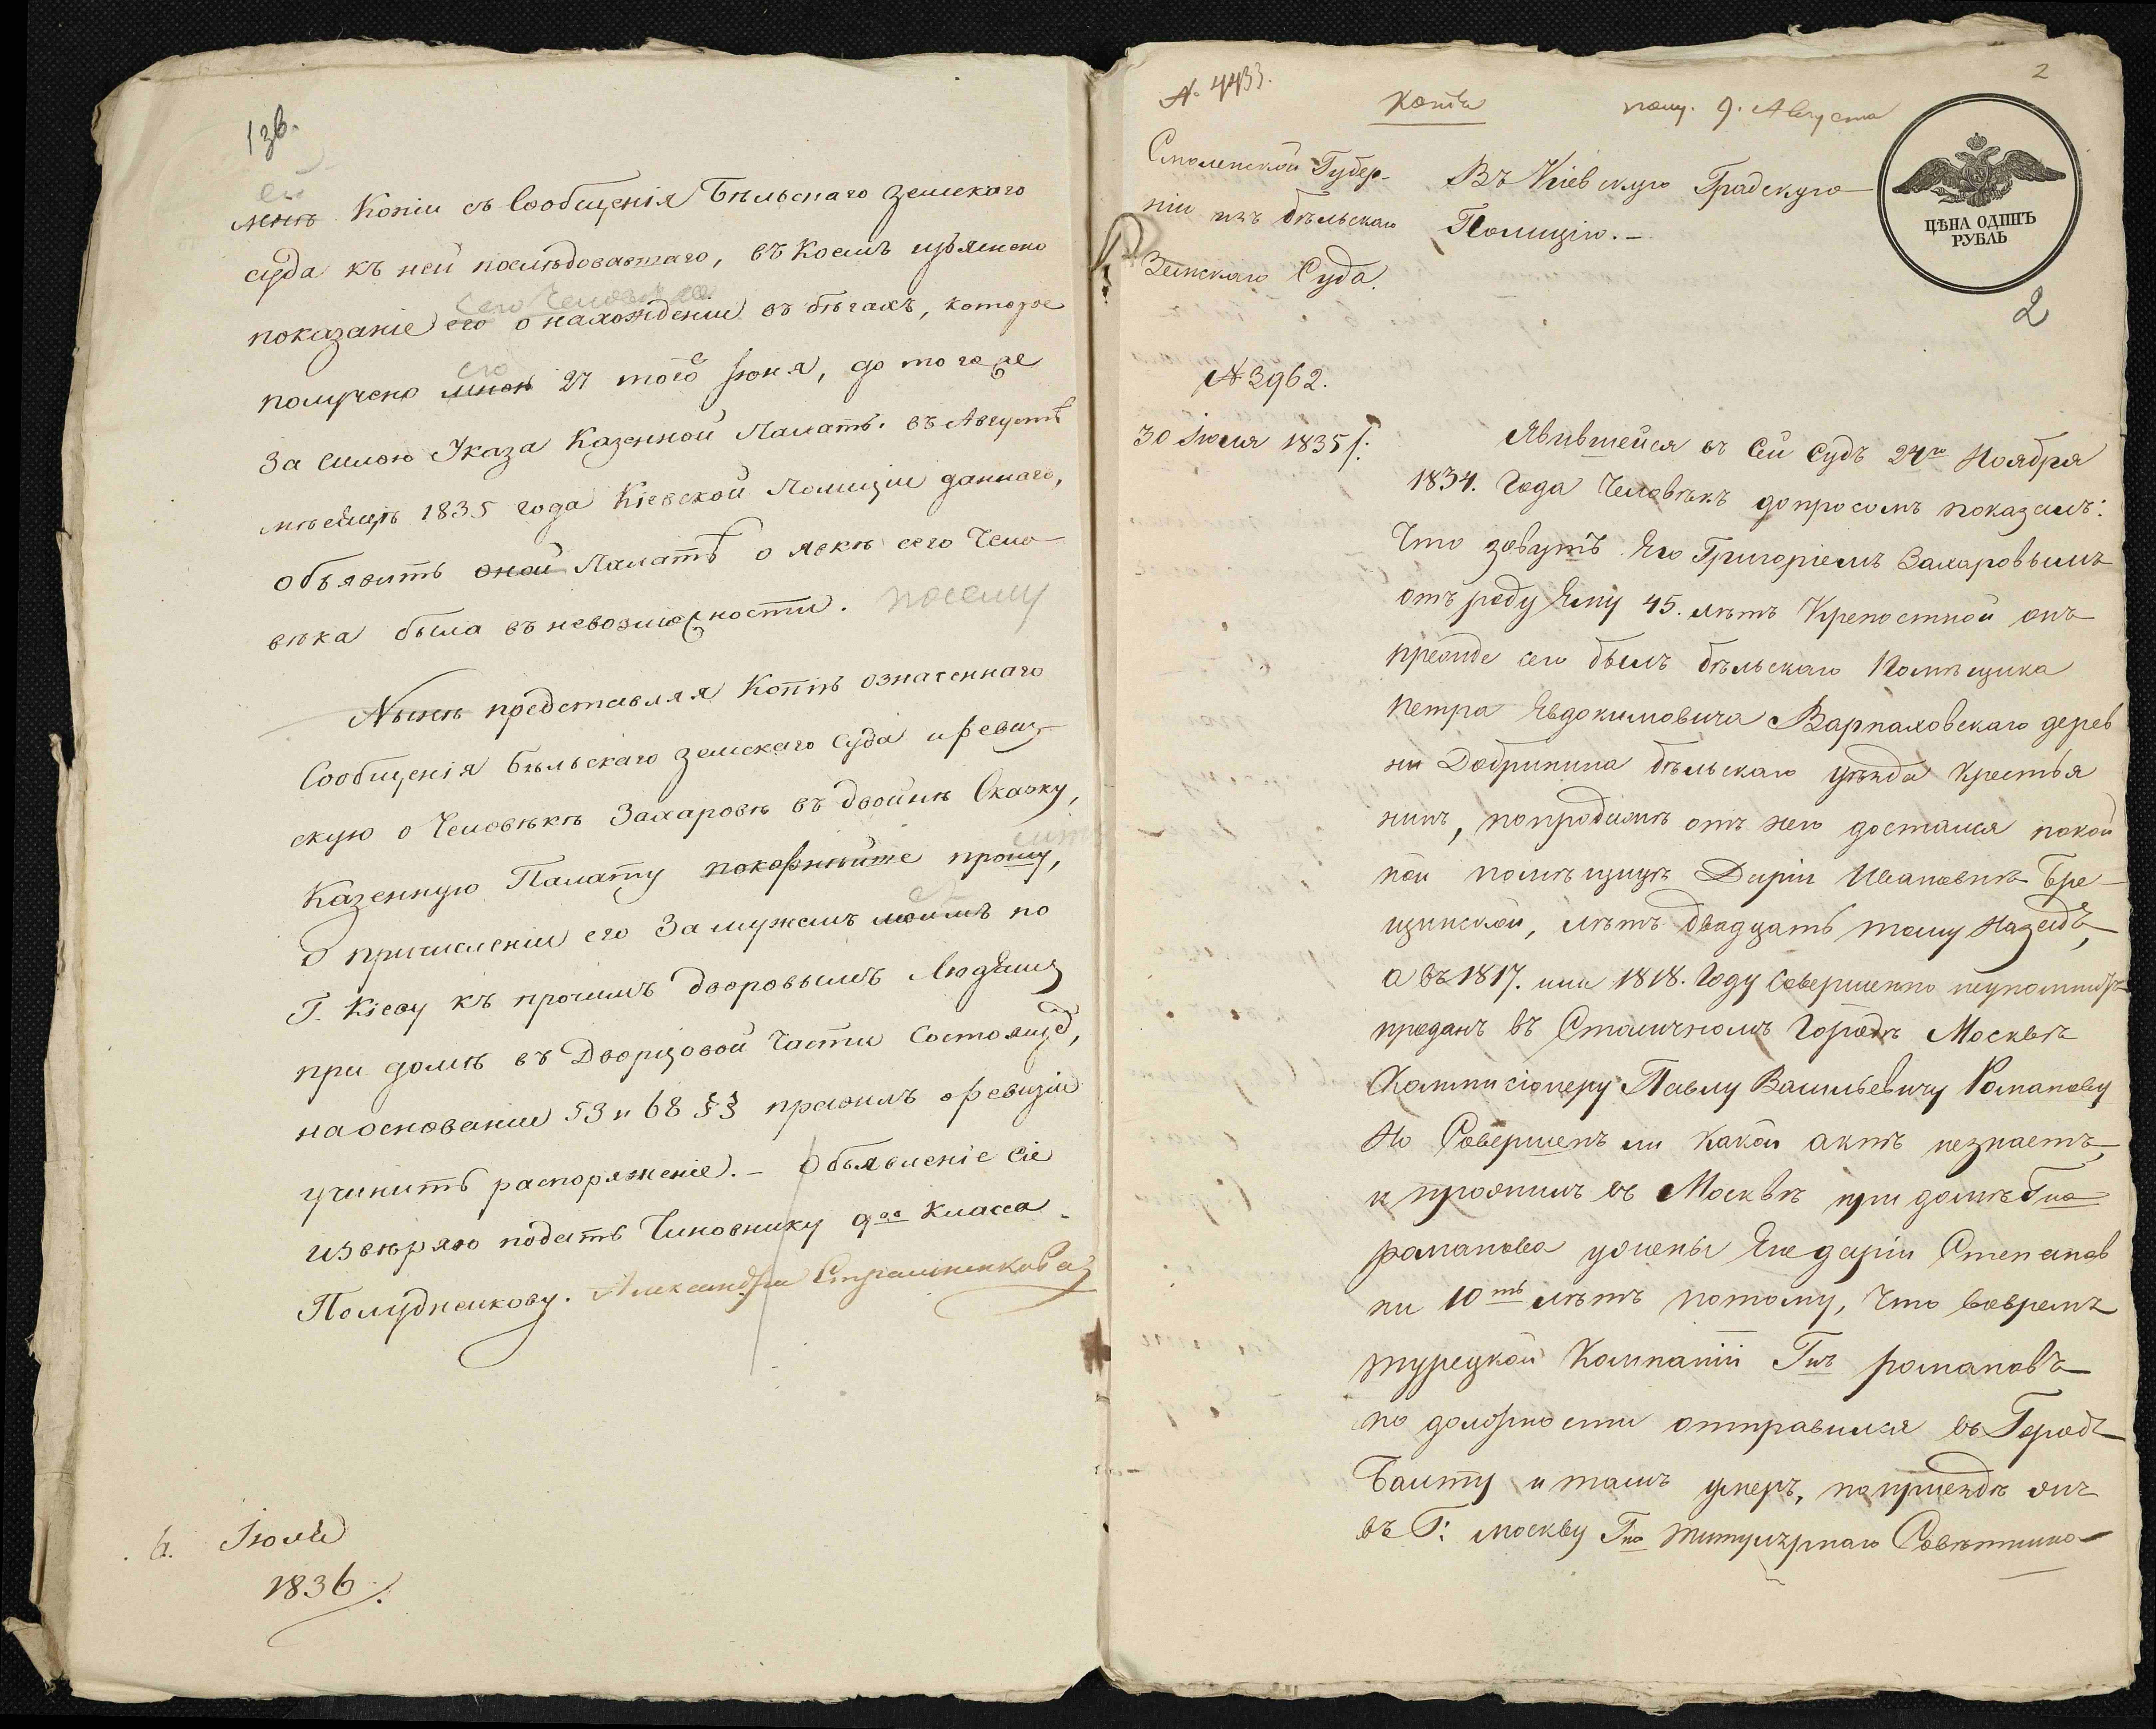 1зв.
ей
мнѣ Копіи съ Сообщенія Бѣльскаго Земскаго
суда къ ней послѣдовавшаго, въ коемъ изъяснено
сего Человѣка
показаніе его о нахожденіи въ бѣгахъ, которое
ею
получено мною 27 того Іюня, до того же
За силою Указа Казенной Палаты въ Августѣ
мѣсяцѣ 1835 года Кіевской Полиціи даннаго,
объявить оной Палатѣ о явкѣ сего Чело
вѣка была въ невозможности. посему
Нынѣ представляя Копію означеннаго
Сообщенія Бѣльскаго Земскаго Суда и ревиз
скую о Человѣкѣ Захаровѣ въ двойнѣ Сказку,
Казенную Палату покорнѣйше прошу,
О причисленіи его За мужемъ моимъ по
Г. Кіеву къ прочимъ дворовымъ Людямъ
при домѣ въ Дворцовой Части Состоящимъ,
на основаніи 53 и 68 §§ правилъ о ревизіи
учинить распоряженіе. — Объявленіе сіе
извѣряю подать Чиновнику 9го Класса
Полудненкову. Александра
6. Іюля
1836.
№ 4433.
Копія
2
полу. 9. Августа
Смоленской Губер-
ніи изъ бѣльскаго
Земскаго Суда.
Въ Кіевскую Градскую
Полицію. —
ЦѢНА ОДИНЪ
РУБЛЬ
2
№ 3962.
30 Іюля 1835 г.
Явившейся въ Сей Судъ 24го Ноября
1834. Года Человѣкъ допросомъ показалъ:
Что зовутъ Его Григоріемъ Захаровымъ
отъ роду Ему 45. лѣтъ Крепостной онъ
прежде сего былъ бѣльскаго Помѣщика
Петра Евдокимовича Варпаховскаго дерев
ни Добринина бѣльскаго уѣзда Крестья
нинъ, попродажѣ отъ него достался покой
ной помѣщицѣ Дарьи Ивановнѣ Бре-
щинской, лѣтъ двадцать тому Назадъ,
а въ 1817. или 1818. Году Совершенно неупомнитъ
проданъ въ Столичномъ Городѣ Москвѣ
Коммисіонеру Павлу Васильевичу Романову
Но Совершенъ ли какой актъ незнаетъ,
и проживъ въ Москвѣ при домѣ Гна
романова ужены Его дарьи Степанов
ны 10ть лѣтъ потому, что вовремя
турецкой Компаніи Гнъ романовъ
по должности отправился въ Городъ
Балту и тамъ умеръ, поприездѣ
въ Г: москву Гна титулярнаго Совѣтника